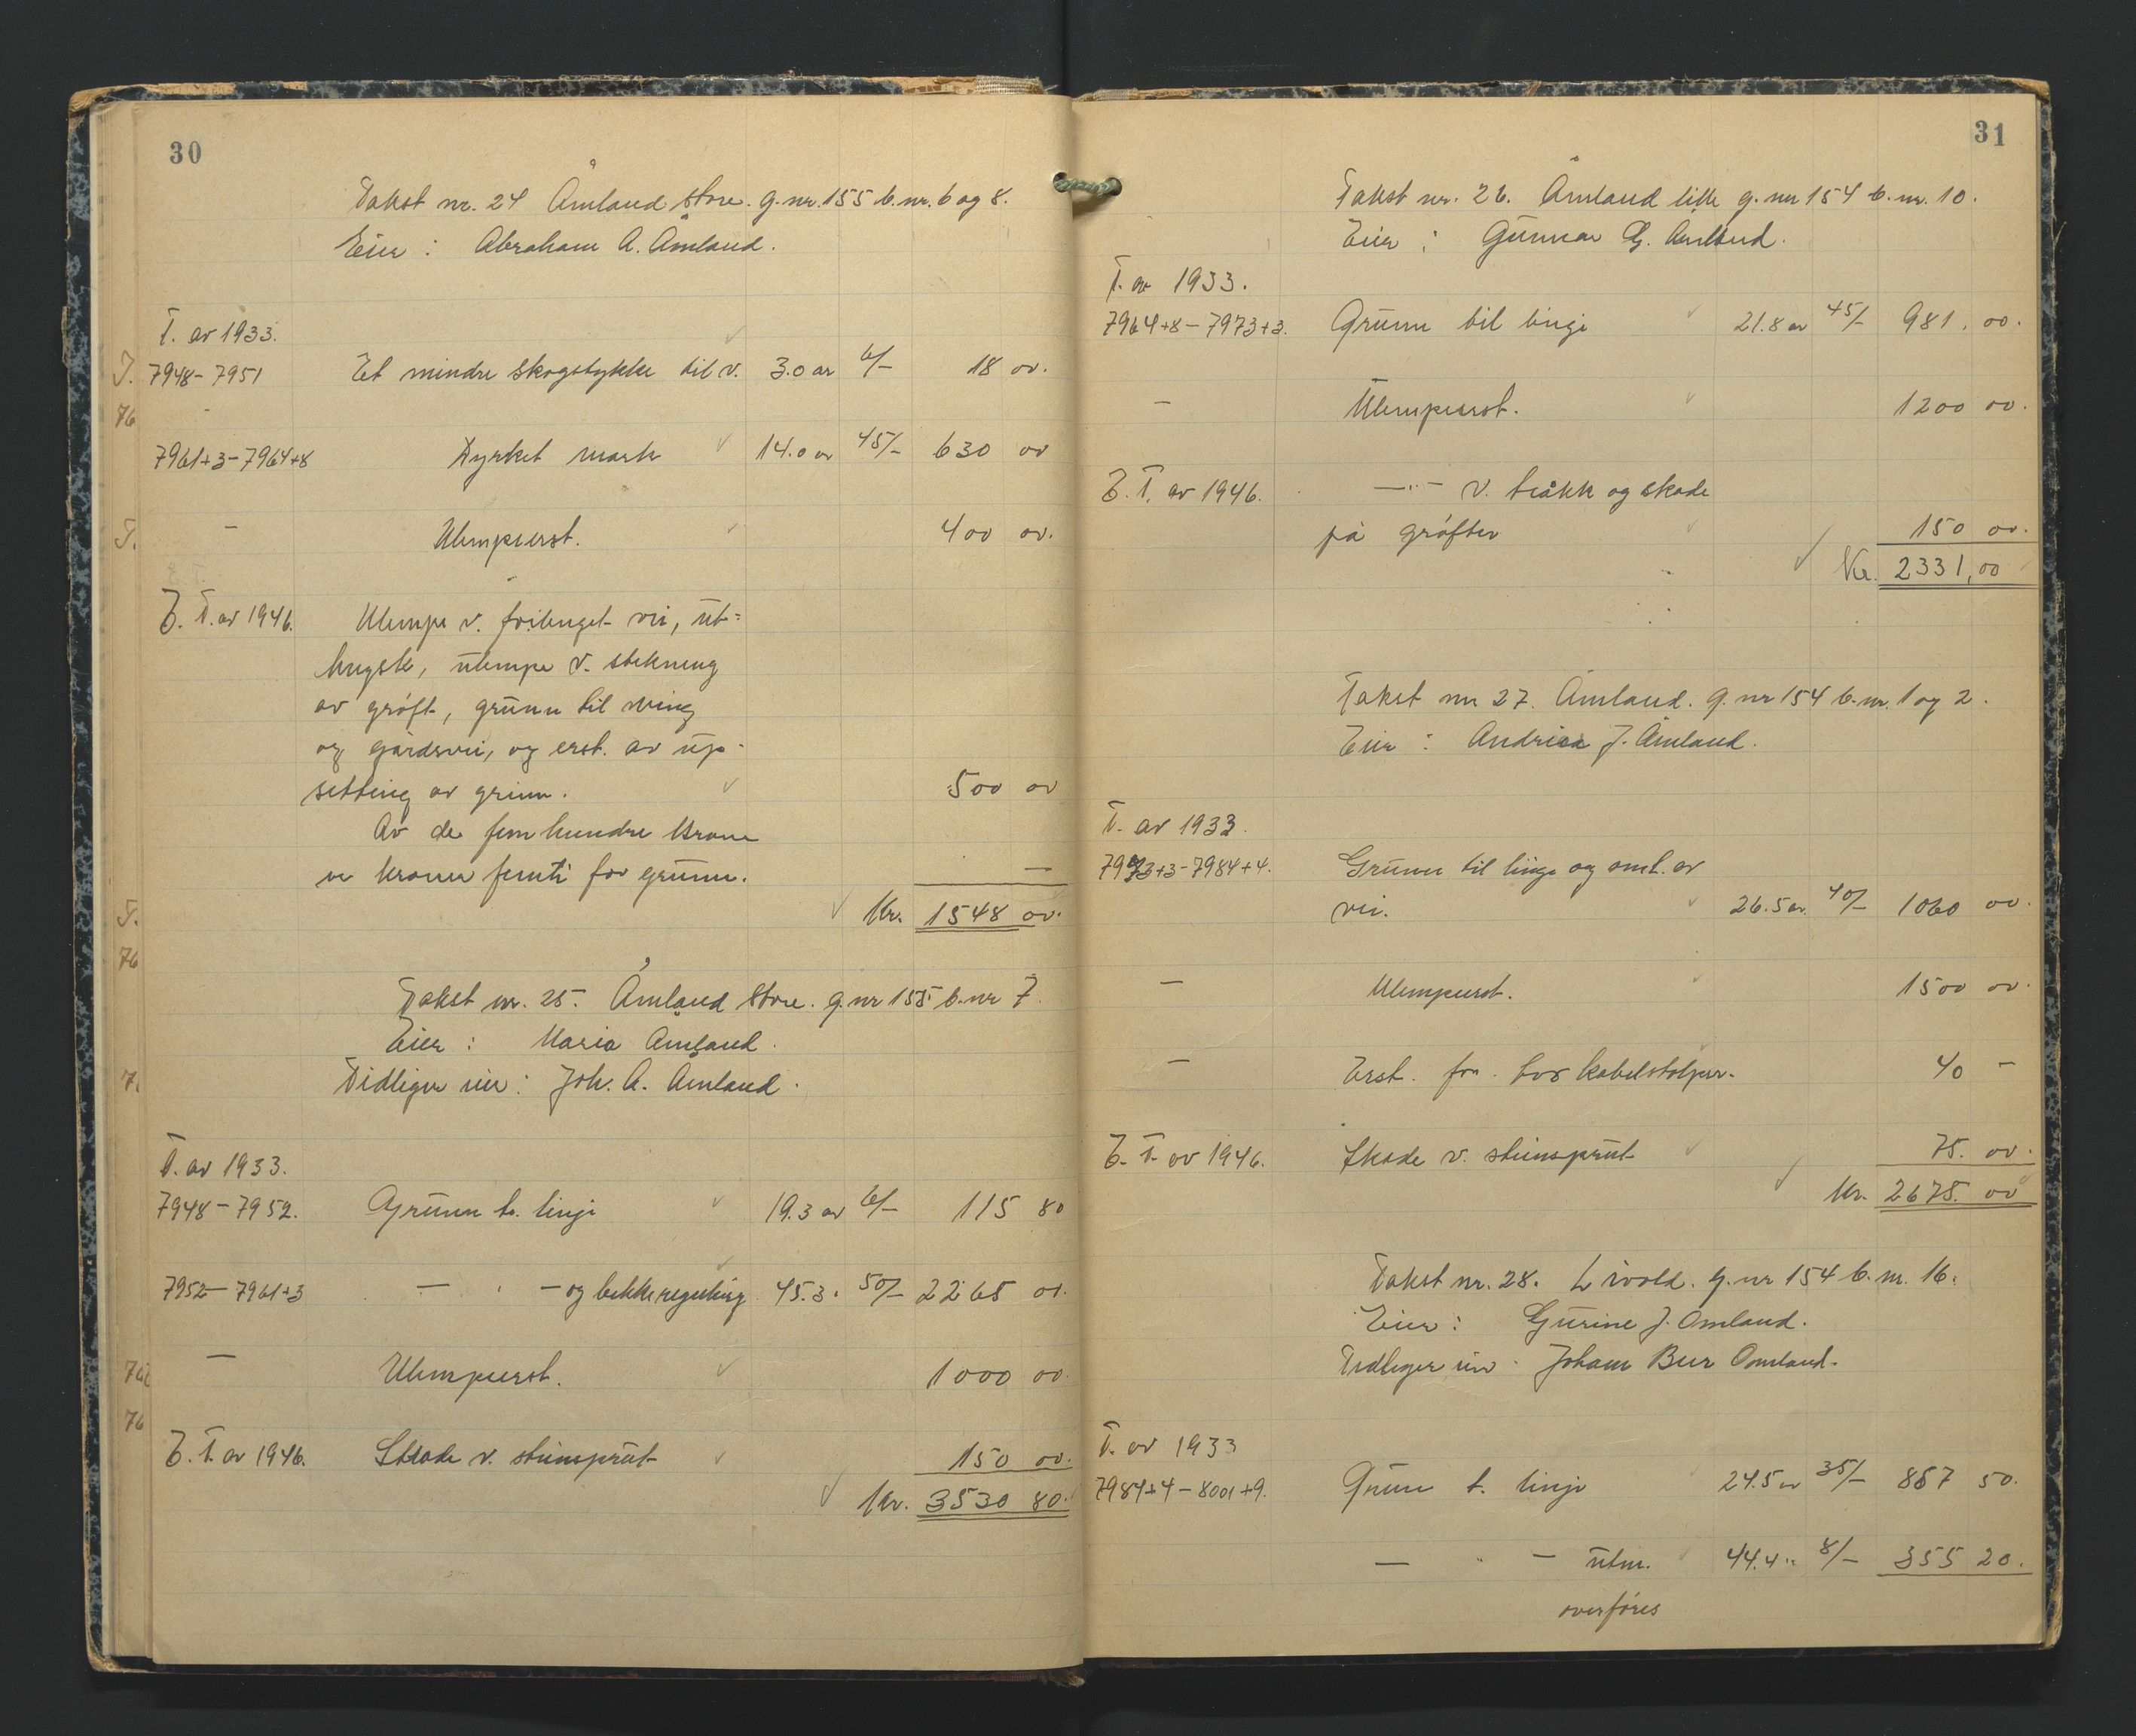 30
Takst nr. 24 Åmland store. g.nr. 155 b.nr. 6 og 8.
Eier: Abraham A. Åmland.
T. av 1933.
7948-7951 Et mindre skogstykke til v. 3.0 ar 6/- 18 00.
7961+3-7964+8 Dyrket mark 14.0 ar 45/- 630 00
- Ulempeerst. 400 00.
T. av 1946. Ulempe v. forlenget vei, ut-
hugster, ulempe v. stekning
av grøft, grunn til sving
og gårdsvei, og erst. av up-
setting av grinn. 500 00
Av de fem hundre kroner
er kroner femti for grunn. -
Kr. 1548 00.
Takst nr. 25. Åmland store. g.nr 155 b.nr 7.
Eier: Maria Åmland.
Tidligere eier: Joh. A. Åmland.
T. av 1933.
7948-7952. Grunn t. linje 19.3 ar 6/- 115 80
7952-7961+3 - " - og bekkeregulering 45.3 " 50/- 2265 00.
- Ulempeerst. 1000 00.
T. av 1946. Skade v. steinsprut 150 00.
Kr. 3530 80.
31
Takst nr. 26. Åmland lille g.nr 154 b.nr. 10.
Eier: Gunnar G. Åmland.
T. av 1933.
7964+8-7973+3. Grunn til linje 21.8 ar 45/- 981.00.
- Ulempeerst. 1200 00.
T. av 1946. -"- v. tråkk og skade
på grøfter 150 00.
Kr. 2331,00
Takst nr 27. Åmland. g.nr 154 b.nr. 1 og 2.
Eier: Andrea J. Åmland.
T. av 1933.
7973+3-7984+4. Grunn til linje og oml. av
vei. 26.5 ar. 40/- 1060 00.
- Ulempeerst. 1500 00.
- Erst. for to kabelstolper. 40 -
T. av 1946. Skade v. steinsprut 75. 00.
Kr. 2675. 00
Takst nr. 28. Livold. g.nr 154 b.nr. 16.
Eier: Gurine J. Omland.
Tidligere eier: Johan Beer Omland.
T. av 1933
7984+4-8001+9. Grunn t. linje 24.5 ar 35/- 857 50.
- " - utm. 44.4 " 8/- 355 20.
overføres